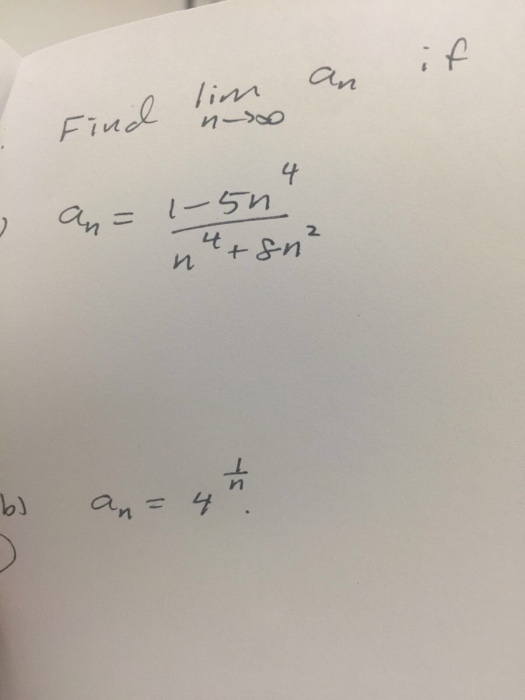 Find lim n→∞ aₙ if
) aₙ = (1-5n⁴)/(n⁴+8n²)
b) aₙ = 4^(1/n).